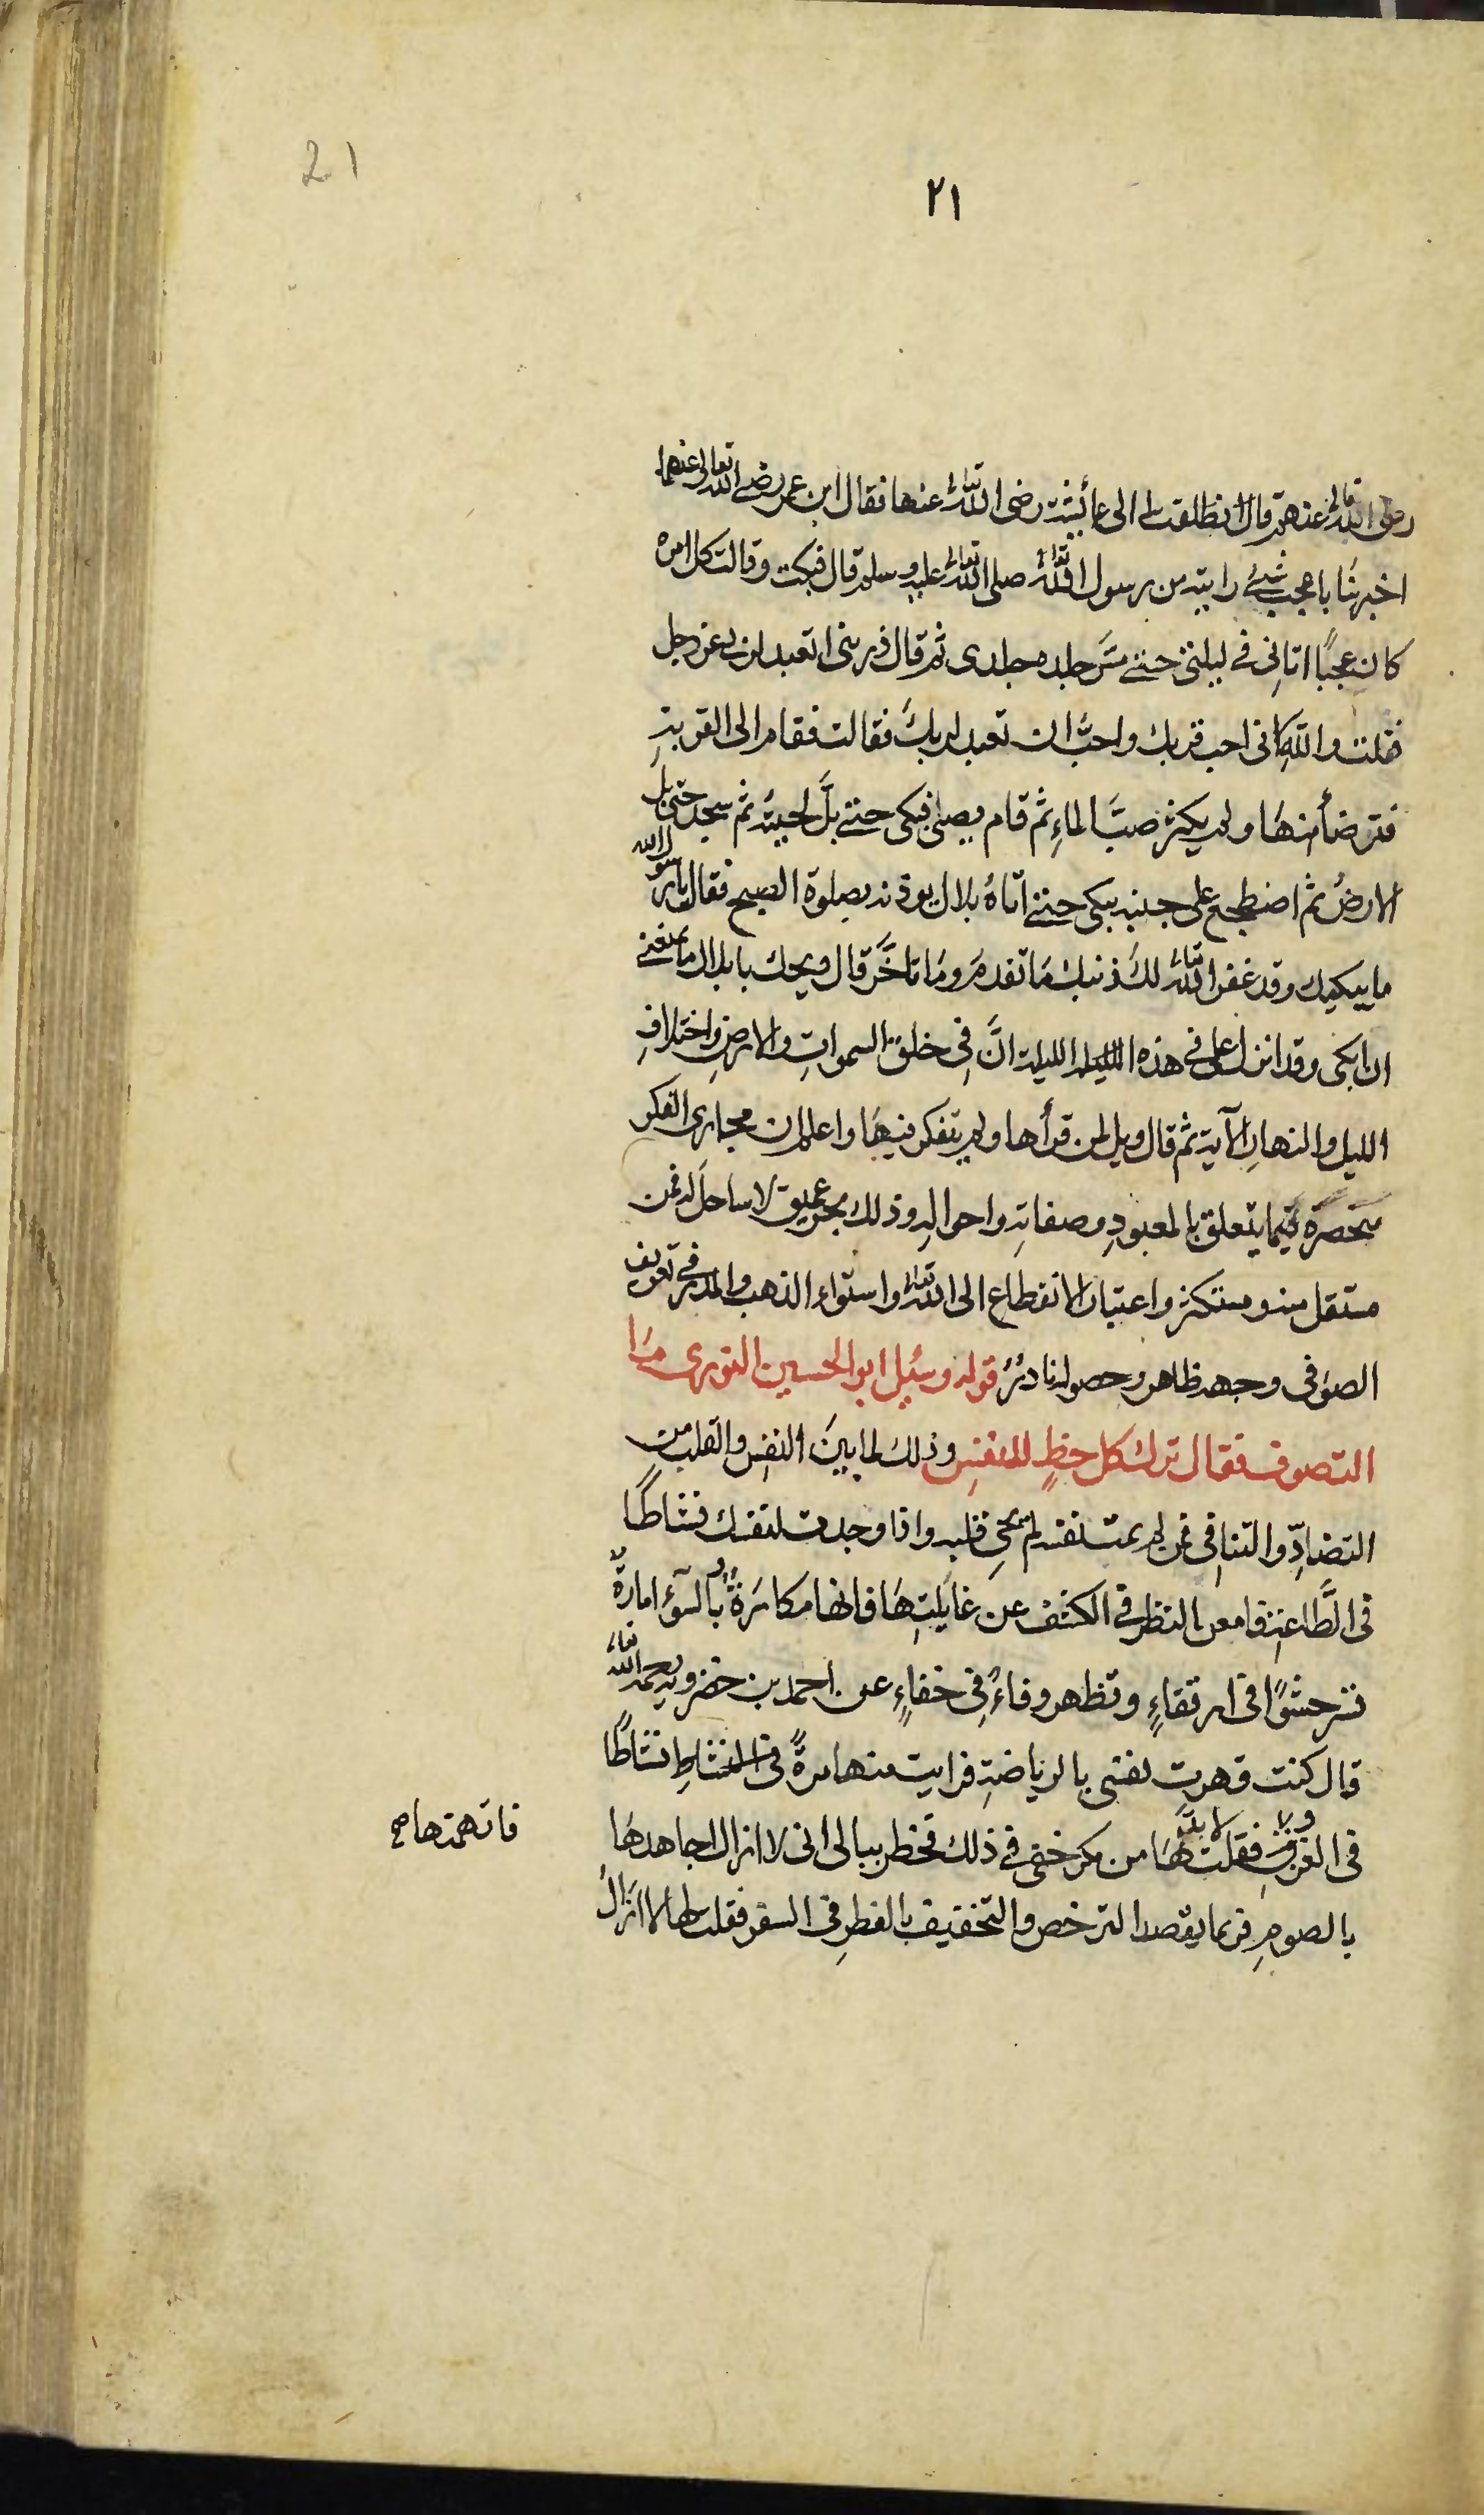 21
٢١
رضى الله تعالى عنهم قال انطلقت الى عائشة رضى الله تعالى عنها فقال ابن عمر رضى الله تعالى عنهما
اخبرينا باعجب شئ رايته من رسول الله صلى الله تعالى عليه وسلم قال فبكت وقالت كل امره
كان عجبًا اتانى فى ليلتى حتى مسّ جلده جلدى ثم قال ذرينى اتعبد لربى عز وجل
فقلت والله انى احب قربك واحبّ ان تعبد لربك فقالت فقام الى القربةِ
فتوضأ منها ولم يكثر صبّ الماءِ ثم قام يصلى فبكى حتى بلّ لحيته ثم سجد حتى بل
الارضَ ثم اضطجع على جنبه يبكى حتى اتاهُ بلال يوذنه بصلوة الصبح فقال يا رسول الله
ما يبكيك وقد غفر الله تعالى لك ذنبك ما تقدم وما تاخّر قال ويحك يا بلال ما يمنعنى
ان ابكى وقد انزل على فى هذه الليلة انّ فى خلق السمواتِ والارضِ واختلافِ
الليل والنهارِ الآية ثم قال ويل لمن قرأها ولم يتفكر فيها واعلم ان مجارى الفكر
منحصرة فيما يتعلق بالمعبودِ وصفاتهِ واحوالهِ وذلك بحر عميق لا ساحل له فمن
مستقل منه ومستكثر واعتبار الانقطاع الى الله تعالى واستواء الذهب والمدر فى تعريف
الصوفى وجهه ظاهر وحصوله نادرٌ قوله وسئل ابو الحسين النورى ما
التصوف فقال ترك كل حظٍ للنفسِ وذلك لما بينَ النفسِ والقلب من
التضادّ والتنافى فمن لم يمت نفسه لم يحىِ قلبه واذا وجدت لنفسك نشاطًا
فى الطّاعةِ فامعن النظر فى الكشف عن غايلتِها فانها مكارةٌ بالسوٓء امارةٌ
فى ارتقاءٍ وتظهر وفاءً فى خفاءٍ عن احمد بن خضرويه رحمه الله تعالى
قال كنت قهرت نفسى بالرياضةِ فرايت منها مرةً نشاطًا
فى الغزو فقلت لا بد لها من مكر خفى فى ذلك فخطر ببالى انى لا ازال اجاهدها
فاتهمتها صح
بالصومِ فربما يقصد الترخص والتخفيف بالفطرِ فى السفر فقلت لها لا ازالُ